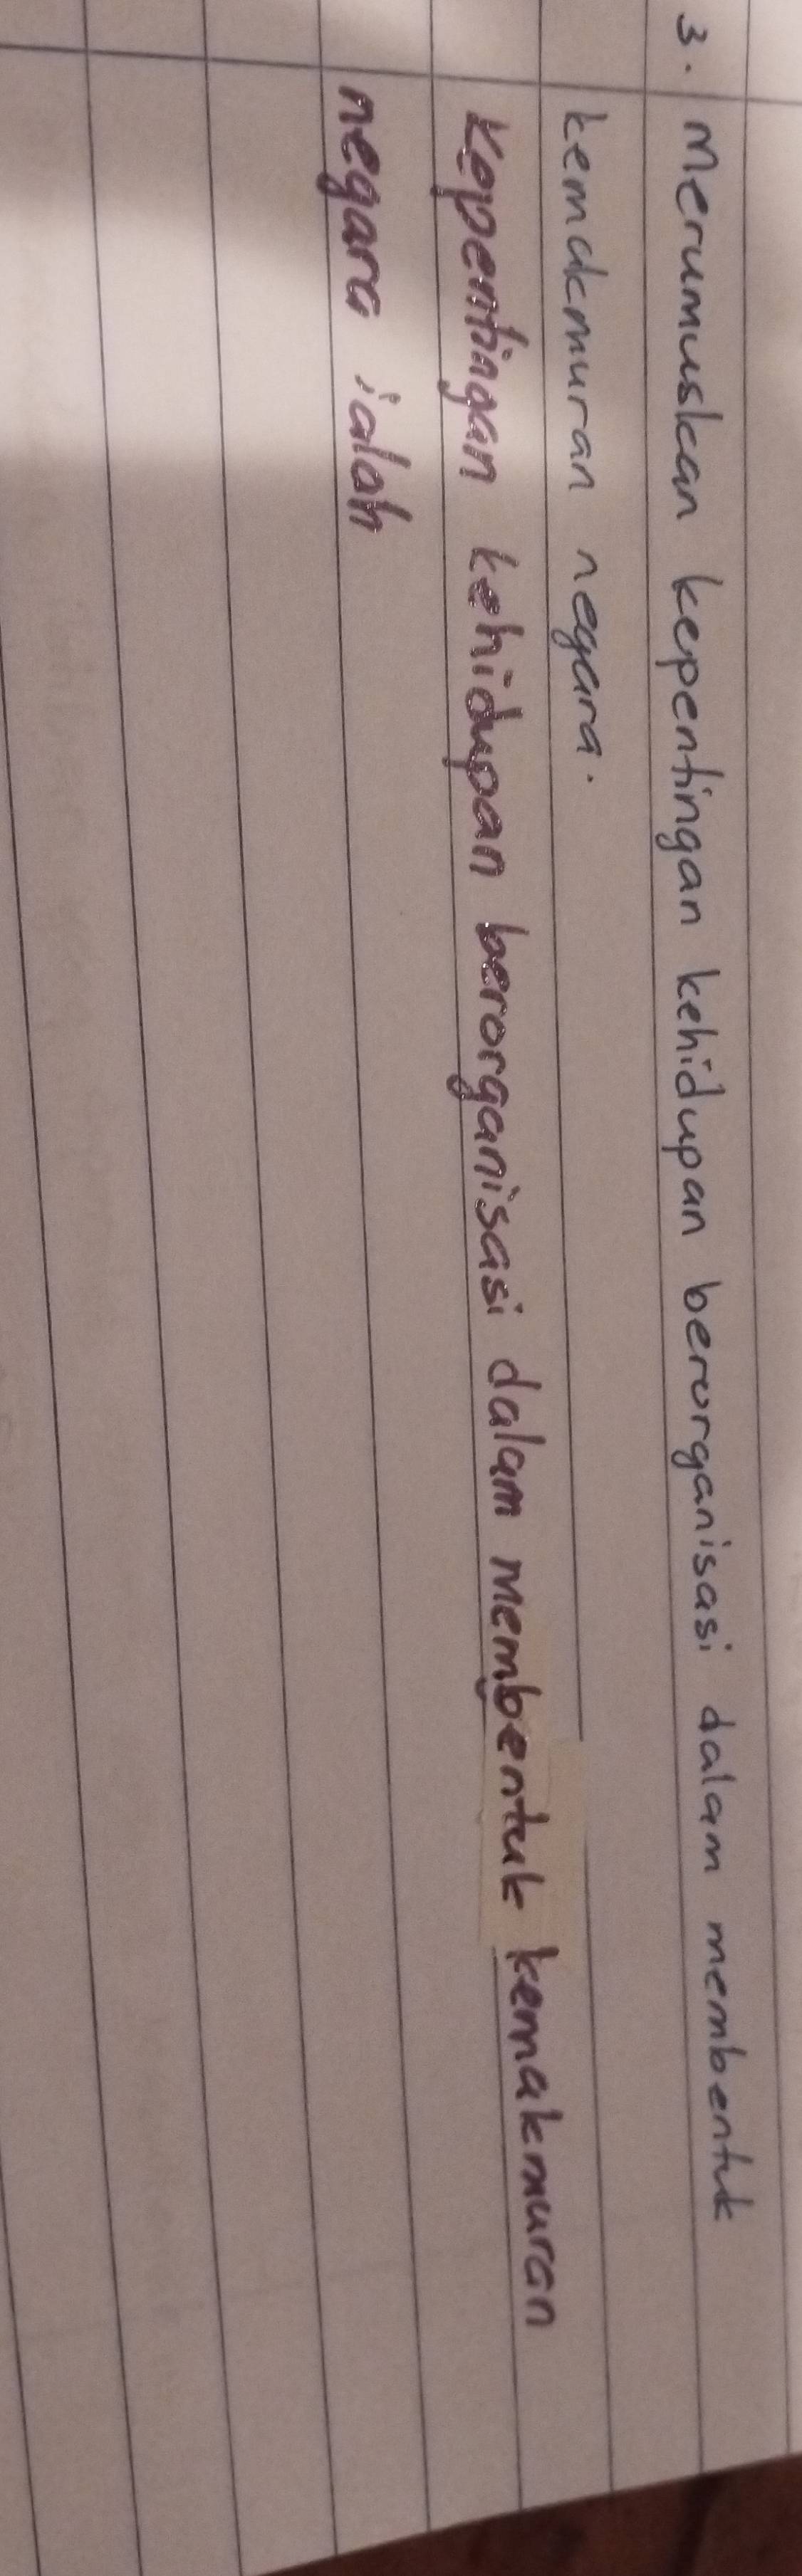 3. Merumuskan kepentingan kehidupan berorganisasi dalam membentuk
kemakmuran negara.
Kepentingan kehidupan berorganisasi dalam membentuk kemakmuran
negara ialah